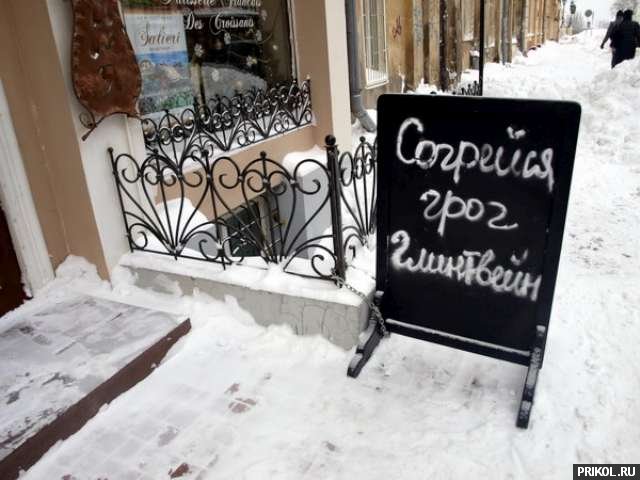 Patisserie Francaise
Des Croissants
Salieri
Согрейся
грог
Глинтвейн
PRIKOL.RU